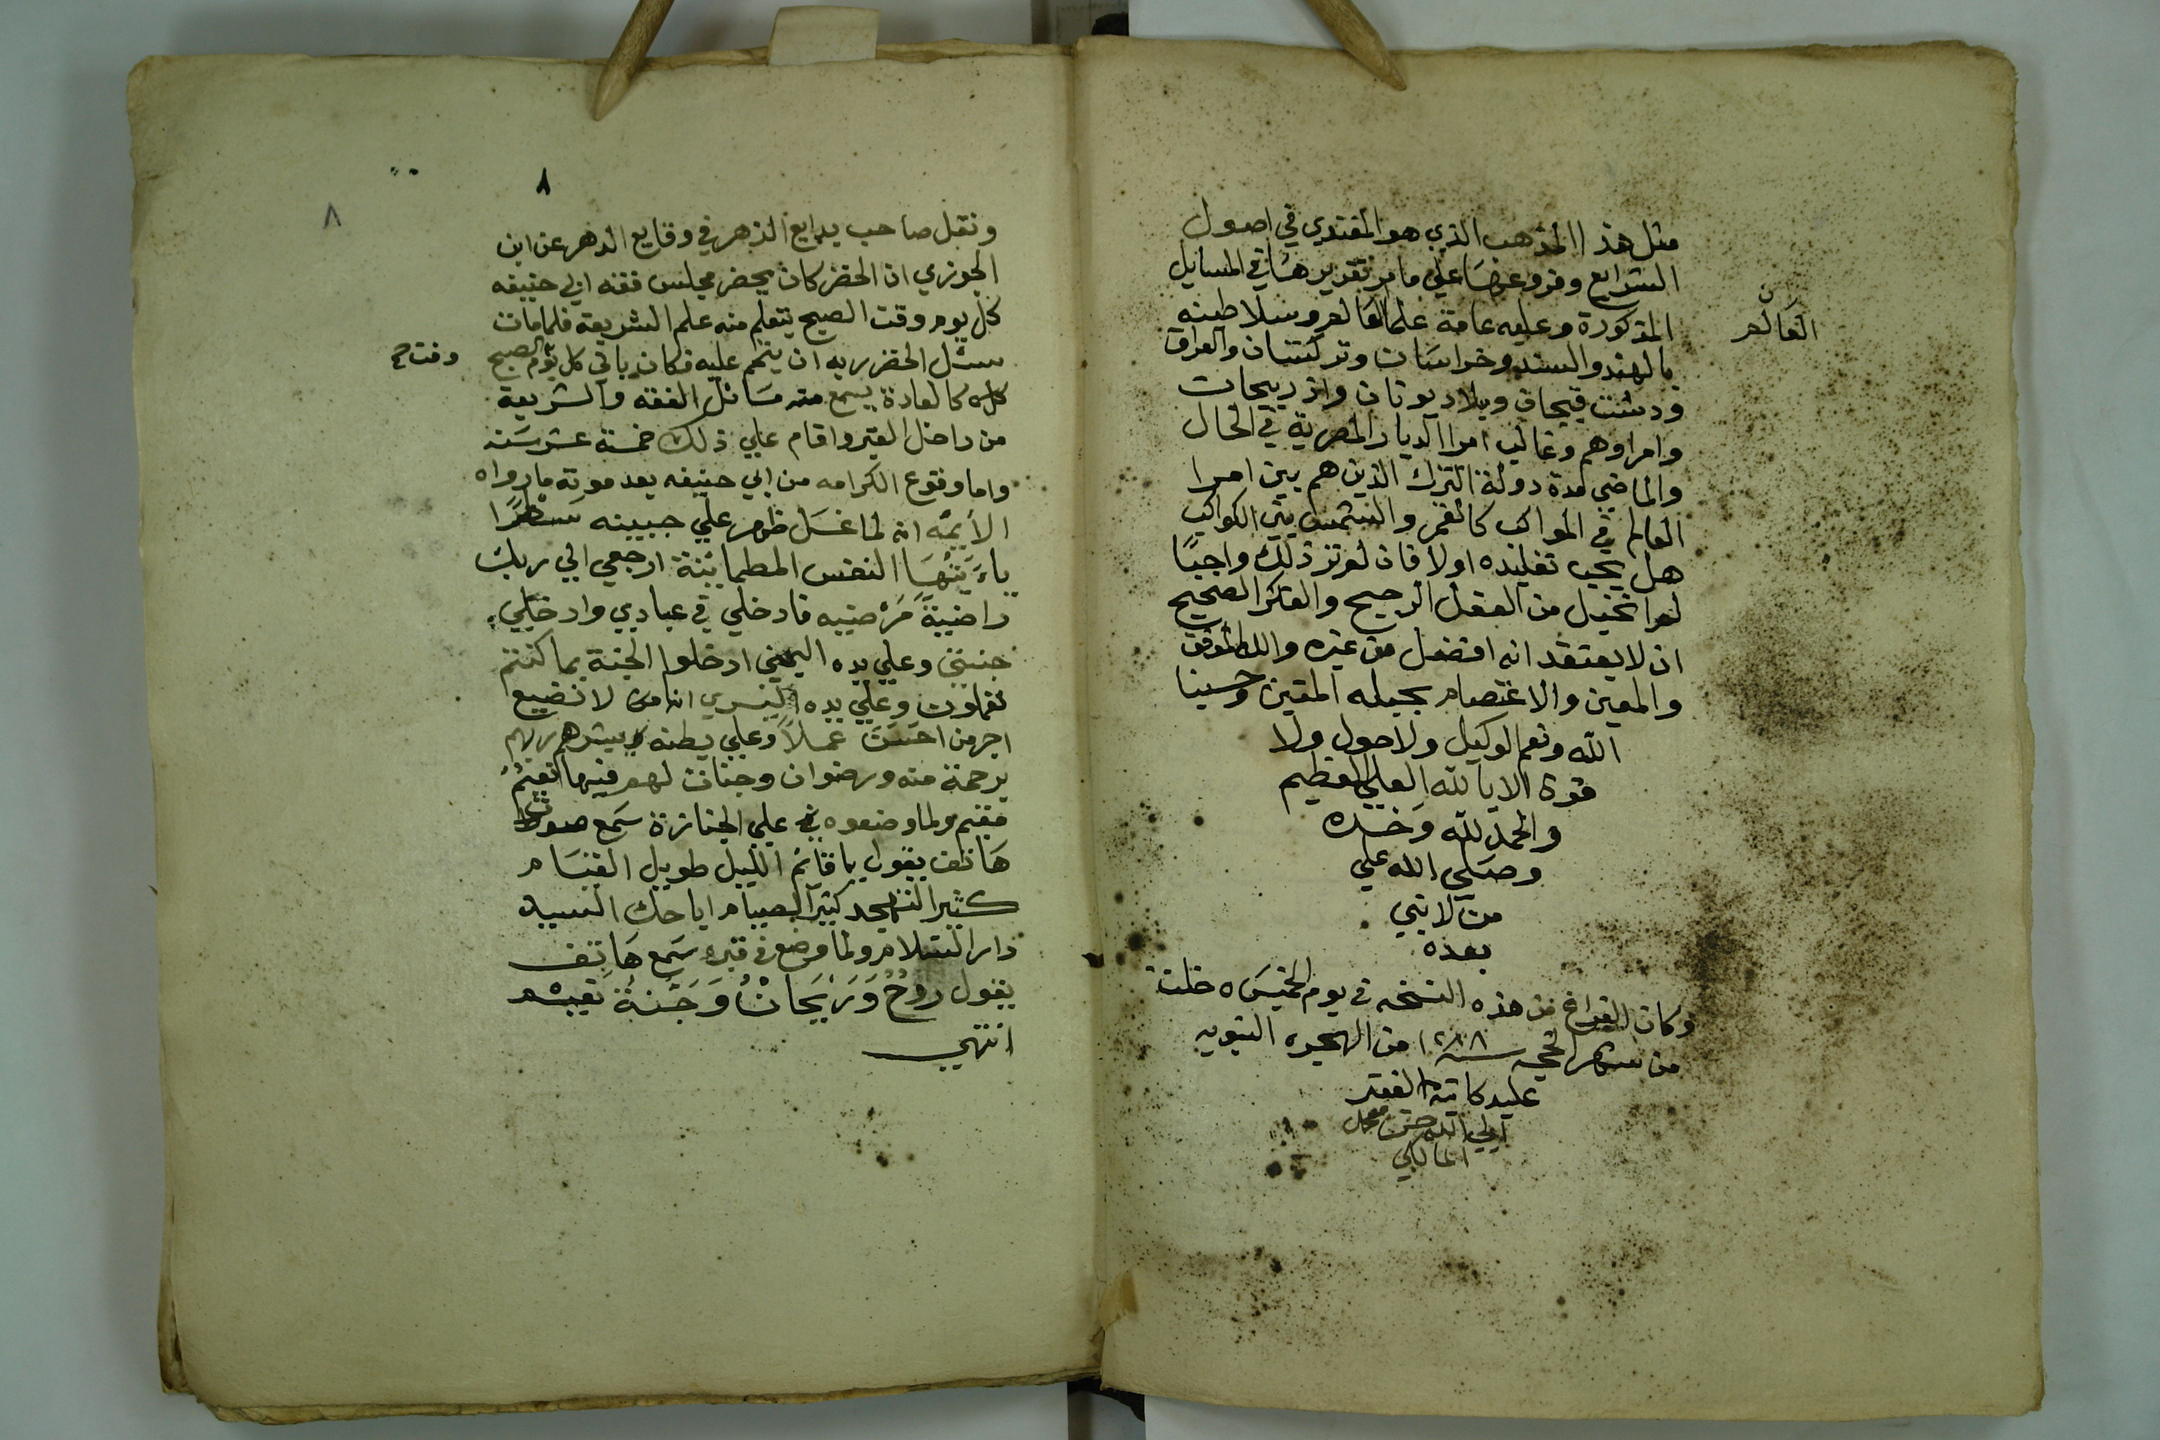 مثل هذا المذهب الذي هو المقتدي في اصول
الشرايع وفروعها علي ما مر تقريرها في المسايل
المذكورة وعليه عامة علما العالم وسلاطينه
العالم
بالهند والسند وخراسان وتركستان والعراق
ودشت قبجاق وبلاد يونان واذربيجان
وامراوهم وغالب امرا الديار المصرية في الحال
والماضي مدة دولة الترك الذين هم بين امرا
العالم في المواكب كالقمر والشمس بين الكواكب
هل يجب تقليده اولا فان لم تر ذلك واجبا
لم من العقل الرجيح والفكر الصحيح
ان لا يعتقد انه افضل من غيره والله الموفق
والمعين والاعتصام بحبله المتين وحسبنا
الله ونعم الوكيل ولا حول ولا
قوة الا بالله العلي العظيم
والحمد لله وحده
وصلي الله علي
من لا نبي
بعده
وكان الفراغ من هذه النسخه في يوم الخميس ٥ خلت
من شهر الحجه سنة ١٢٨٨ من الهجره النبويه
علي يد كاتبه الفقير
الي الله حسن محمد
المالكي
٨
٨
ونقل صاحب بدايع الزهر في وقايع الدهر عن ابن
الجوزي ان الخضر كان يحضر مجلس فقه ابي حنيفه
كل يوم وقت الصبح يتعلم منه علم الشريعة فلما مات
سئل الخضر ربه ان علمه فكان ياتي كل يوم الصبح
كالعادة يسمع منه مسائل الفقه والشريعة
من داخل القبر واقام علي ذلك خمسة عشر سنه
واما وقوع الكرامه من ابي حنيفه بعد موته ما رواه
الأيمه انه لما غسل ظهر علي جبينه سطرًا
ياءيتها النفس المطمائنة ارجعي الي ربك
راضية مرضيه فادخلي في عبادي وادخلي
جنتي وعلي يده اليمني ادخلوا الجنة بما كنتم
تعملون وعلي يده اليسري انا لا نضيع
اجر من احسن عملاً وعلي بطنه يبشرهم ربهم
برحمة منه ورضوان وجنات لهم فيها نعيم
مقيم ولما وضعوه علي الجنازة سمع صوت
هاتف يقول يا قائم الليل طويل القيام
كثير التهجد كثير الصيام اباحك السيد
دار السلام ولما وضع في قبره سمع هاتف
يقول روح وريحان وجنة نعيم
انتهي